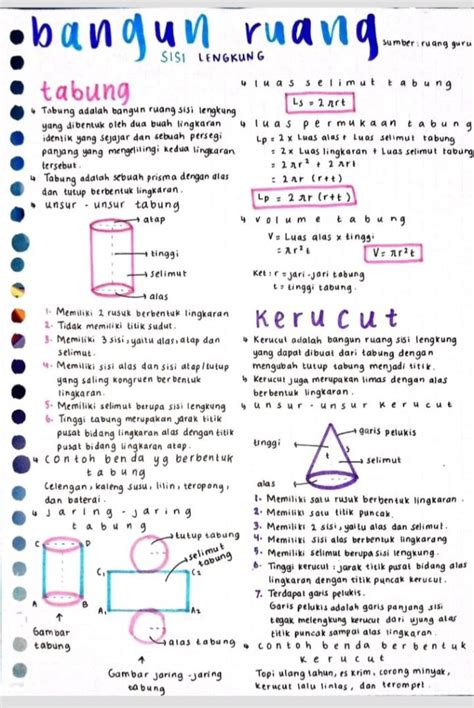 bangun ruang
SISI LENGKUNG
sumber: ruang guru
tabung
Tabung adalah bangun ruang sisi lengkung
yang dibentuk oleh dua buah lingkaran
identik yang sejajar dan sebuah persegi
panjang yang mengelilingi kedua lingkaran
tersebut.
Tabung adalah sebuah prisma dengan alas
dan tutup berbentuk lingkaran.
unsur - unsur tabung
atap
tinggi
selimut
alas
1. Memiliki 2 rusuk berbentuk lingkaran
2. Tidak memiliki titik sudut.
3. Memiliki 3 sisi, yaitu alas, atap dan
selimut.
4. Memiliki sisi alas dan sisi atap/tutup
yang saling kongruen berbentuk
lingkaran.
5. Memiliki selimut berupa sisi lengkung
6. Tinggi tabung merupakan jarak titik
pusat bidang lingkaran alas dengan titik
pusat bidang lingkaran atap.
contoh benda yg berbentuk
tabung
Celengan, kaleng susu, lilin, teropong,
dan baterai.
jaring - jaring
tabung
C D
A B
Gambar
tabung
tutup tabung
selimut
tabung
C1 C2
A1 A2
alas tabung
Gambar jaring-jaring
tabung
luas selimut tabung
Ls = 2πrt
luas permukaan tabung
Lp = 2 x Luas alas + Luas selimut tabung
= 2 x Luas lingkaran + Luas selimut tabung
= 2πr² + 2πrt
= 2πr (r+t)
Lp = 2πr (r+t)
volume tabung
V = Luas alas x tinggi
= πr²t
V = πr²t
Ket: r = jari-jari tabung
t = tinggi tabung.
Kerucut
Kerucut adalah bangun ruang sisi lengkung
yang dapat dibuat dari tabung dengan
mengubah tutup tabung menjadi titik.
Kerucut juga merupakan limas dengan alas
berbentuk lingkaran.
unsur - unsur kerucut
garis pelukis
tinggi
t
s
selimut
alas
1. Memiliki satu rusuk berbentuk lingkaran.
2. Memiliki satu titik puncak.
3. Memiliki 2 sisi, yaitu alas dan selimut.
4. Memiliki sisi alas berbentuk lingkarang
5. Memiliki selimut berupa sisi lengkung.
6. Tinggi kerucut : jarak titik pusat bidang alas
lingkaran dengan titik puncak kerucut.
7. Terdapat garis pelukis.
Garis pelukis adalah garis panjang sisi
tegak melengkung kerucut dari ujung atas
titik puncak sampai alas lingkaran.
contoh benda berbentuk
kerucut
Topi ulang tahun, es krim, corong minyak,
kerucut lalu lintas, dan terompet.